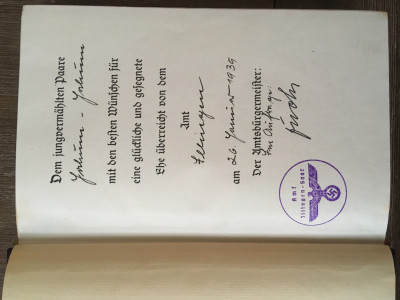 Dem jungvermählten Paare
mit den besten Wünschen für
eine glückliche und gesegnete
Ehe überreicht von dem
Amt
Illingen
am 26. Januar 1939
Der Amtsbürgermeister:
Im Auftrage:
Amt
Illingen-Saar